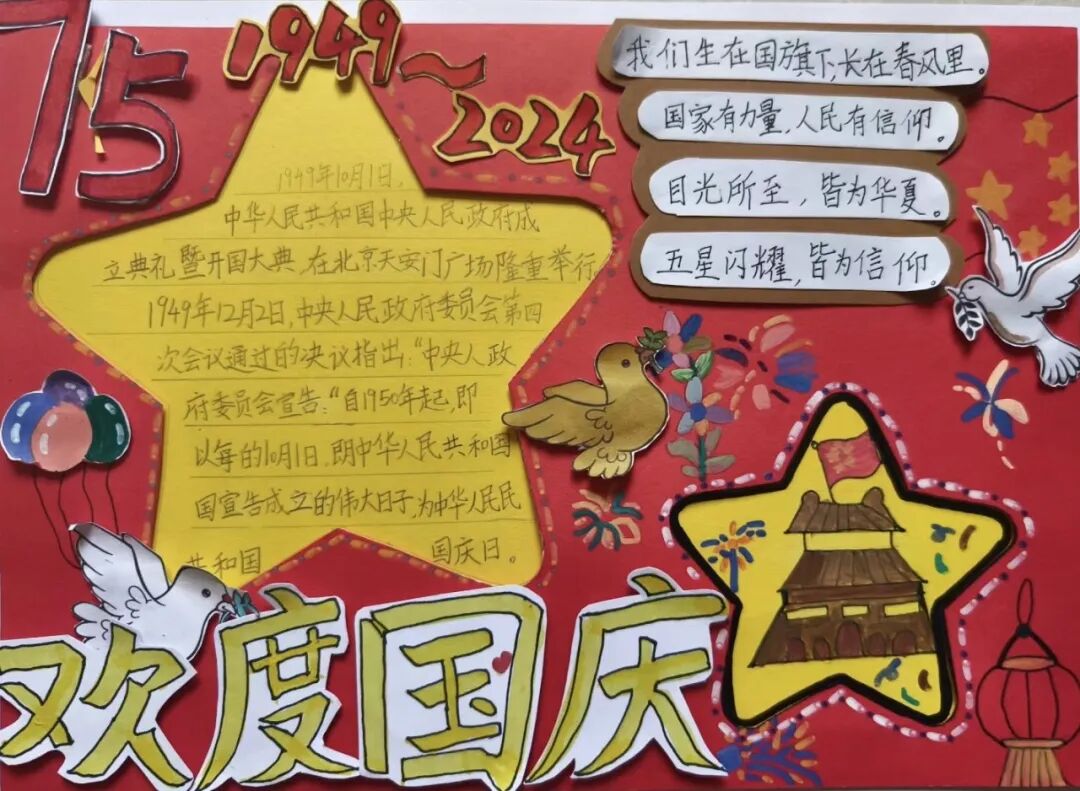 75
1949~
2024
我们生在国旗下,长在春风里。
国家有力量,人民有信仰。
目光所至,皆为华夏。
五星闪耀,皆为信仰。
1949年10月1日,
中华人民共和国中央人民政府成
立典礼暨开国大典,在北京天安门广场隆重举行
1949年12月2日,中央人民政府委员会第四
次会议通过的决议指出:“中央人政
府委员会宣告:“自1950年起,即
以每的10月1日,朗中华人民共和国
国宣告成立的伟大日子,为中华人民民
共和国 国庆日。
欢度国庆